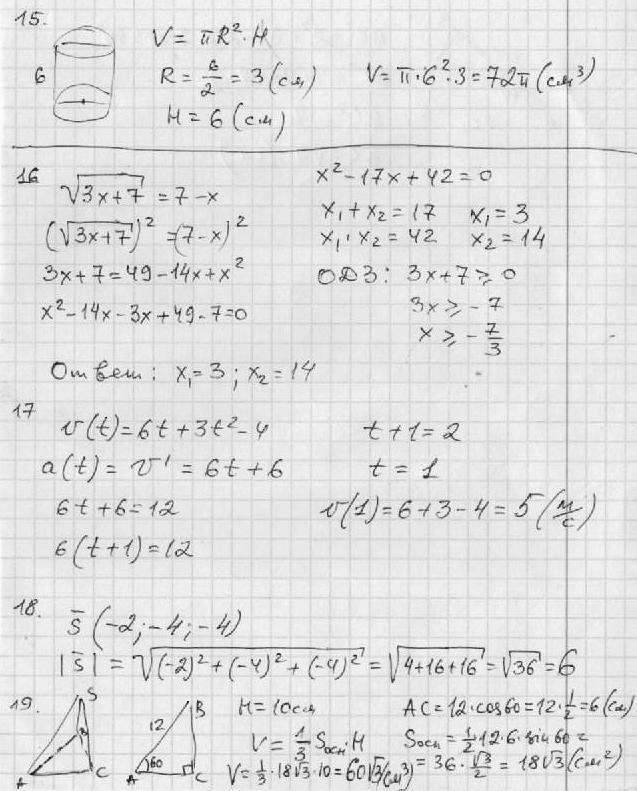 15.
6
V = πR²·H
R = 6/2 = 3 (см)
H = 6 (см)
V = π·6²·3 = 72π (см³)
16
√(3x+7) = 7 - x
(√(3x+7))² = (7-x)²
3x+7 = 49 - 14x + x²
x² - 14x - 3x + 49 - 7 = 0
x² - 17x + 42 = 0
x₁ + x₂ = 17 x₁ = 3
x₁·x₂ = 42 x₂ = 14
ОДЗ: 3x+7 ≥ 0
3x ≥ -7
x ≥ -7/3
Ответ: x₁ = 3; x₂ = 14
17
v(t) = 6t + 3t² - 4
a(t) = v' = 6t + 6
6t + 6 = 12
6(t+1) = 12
t + 1 = 2
t = 1
v(1) = 6 + 3 - 4 = 5 (м/с)
18.
s̄ (-2; -4; -4)
|s̄| = √((-2)² + (-4)² + (-4)²) = √(4+16+16) = √36 = 6
19.
S
B
A
C
12
B
60
A
C
H = 10см
V = 1/3 Sосн·H
V = 1/3·18√3·10 = 60√3 (см³)
AC = 12·cos60 = 12·1/2 = 6 (см)
Sосн = 1/2·12·6·sin60 =
= 36·√3/2 = 18√3 (см²)